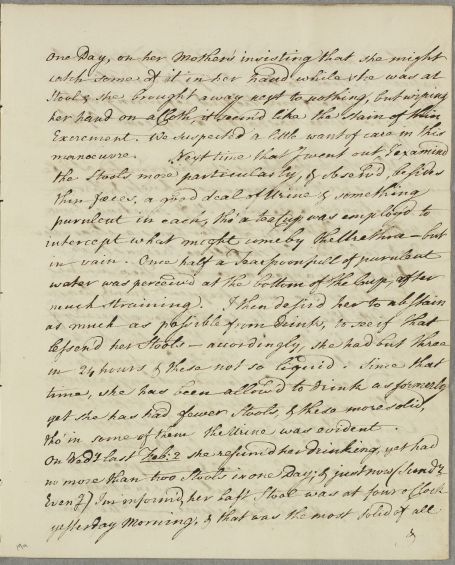 One Day, on her Mothers insisting that she might
catch some of it in her hand while she was at
Stool & she brought away next to nothing, but wiping
her hand on a Cloth, it seemd like the Stain of thin
Excrement. We suspected a little want of care in this
manoeuvre. Next time that I went out I examind
the Stools more particularly, & observd, besides
thin fæces, a good deal of Urine & something
purulent in each, tho' a tea Cup was employd to
intercept what might come by the Urethra – but
in vain. Once half a tea spoonfull of purulent
water was perceivd at the bottom of the Cup, after
much straining. I then desird her to abstain
as much as possible from drink, to see if that
lessend her Stools – accordingly, she had but three
in 24 hours & these not so liquid. Since that
time, she has been allowd to drink as formerly
yet she has had fewer Stools, & these more solid,
tho' in some of them the Urine was evident.
On Wedy last Feb: 2 she resumed her drinking, yet had
no more than two Stools in one Day; & just now (Sundy
Eveng) Im informd, her last Stool was at four o'Clock
yesterday Morning, & that was the most solid of all
&